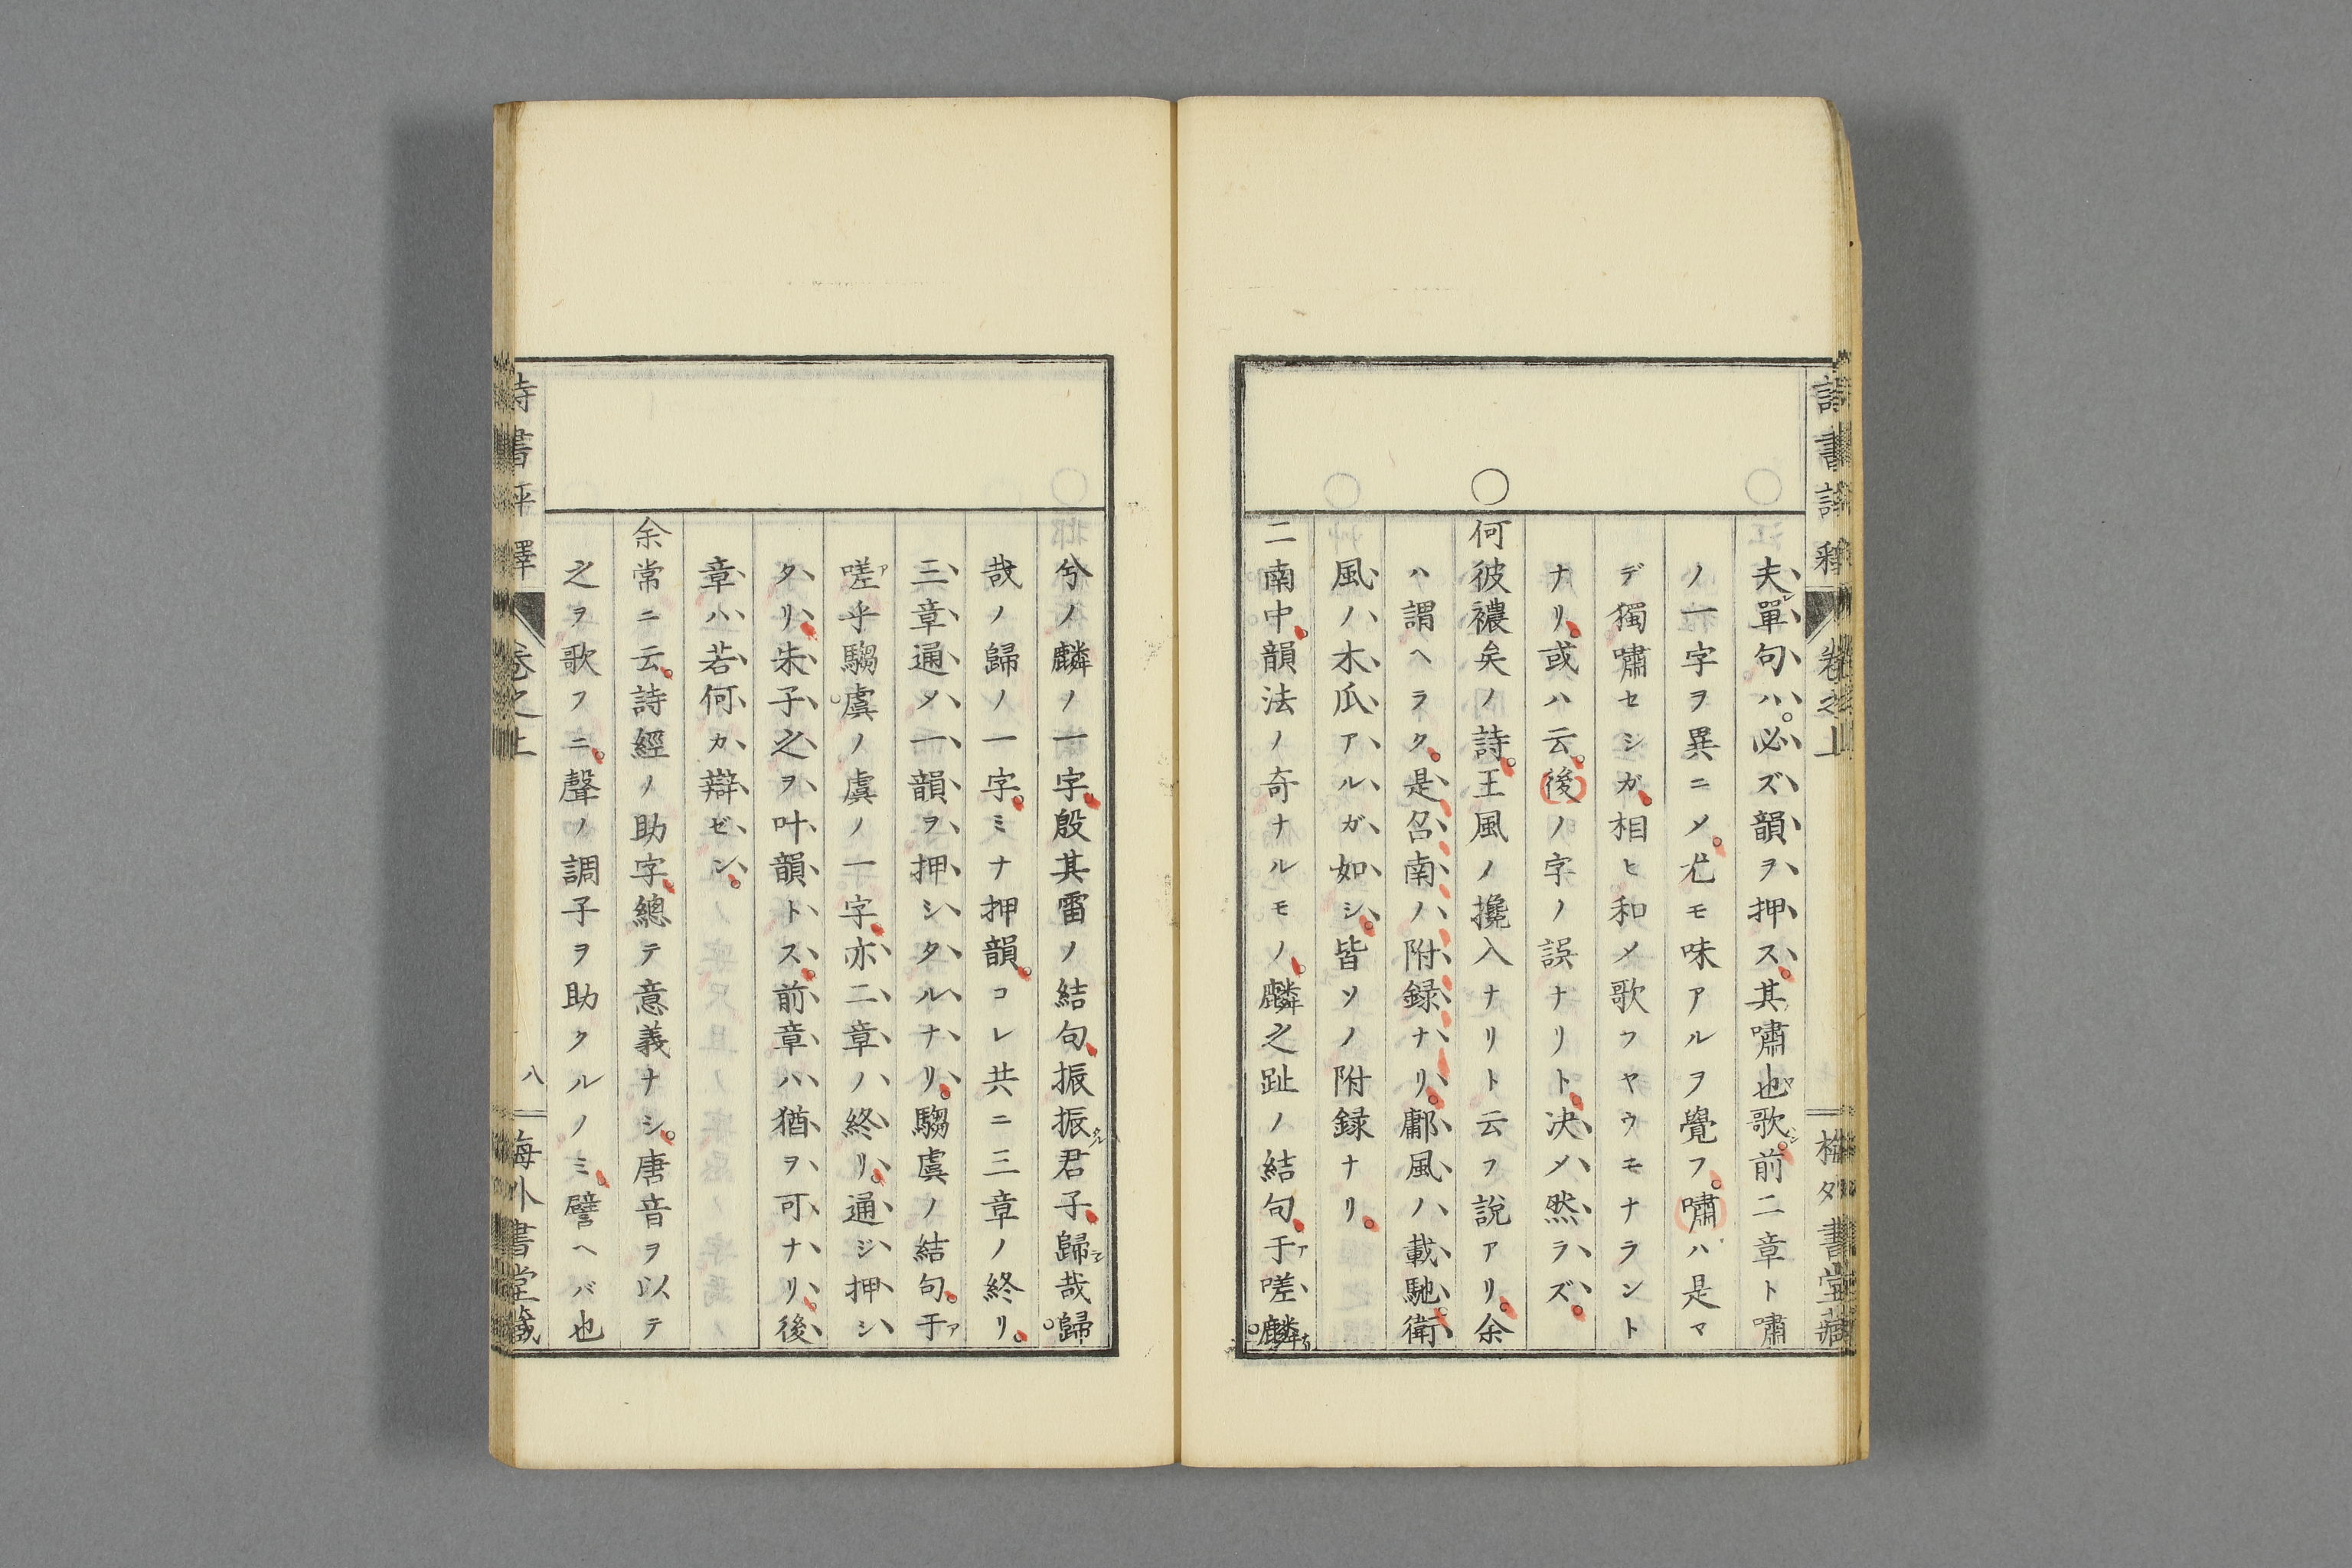 詩書評釋 卷之上 梅外書堂藏
夫單句ハ必ズ韻ヲ押ス。其嘯也歌。前二章ト嘯
ノ一字ヲ異ニメ。尤モ味アルヲ覺フ。嘯ハ是マ
デ獨嘯セシガ。相ヒ和メ歌フヤウモナラント
ナリ。或ハ云。後ノ字ノ誤ナリト。决メ然ラズ。
○何彼襛矣ノ詩。王風ノ攙入ナリト云フ說アリ。余
ハ謂ヘラク。是召南ノ附録ナリ。鄘風ノ載馳。衛
風ノ木瓜アルガ如シ。皆ソノ附録ナリ。
二南中。韻法ノ奇ナルモノ。麟之趾ノ結句。于嗟麟
兮ノ麟ノ一字。殷其雷ノ結句。振振君子。歸哉歸
哉ノ歸ノ一字。ミナ押韻。コレ共ニ三章ノ終リ。
三章通メ一韻ヲ押シタルナリ。騶虞ノ結句。于
嗟乎騶虞ノ虞ノ一字。亦二章ノ終リ。通ジ押シ
タリ。朱子之ヲ叶韻トス。前章ハ猶ヲ可ナリ。後
章ハ若何カ辯ゼン。
余常ニ云。詩經ノ助字。總テ意義ナシ。唐音ヲ以テ
之ヲ歌フニ。聲ノ調子ヲ助クルノミ。譬ヘバ也
詩書評釋 卷之上 八 梅外書堂藏